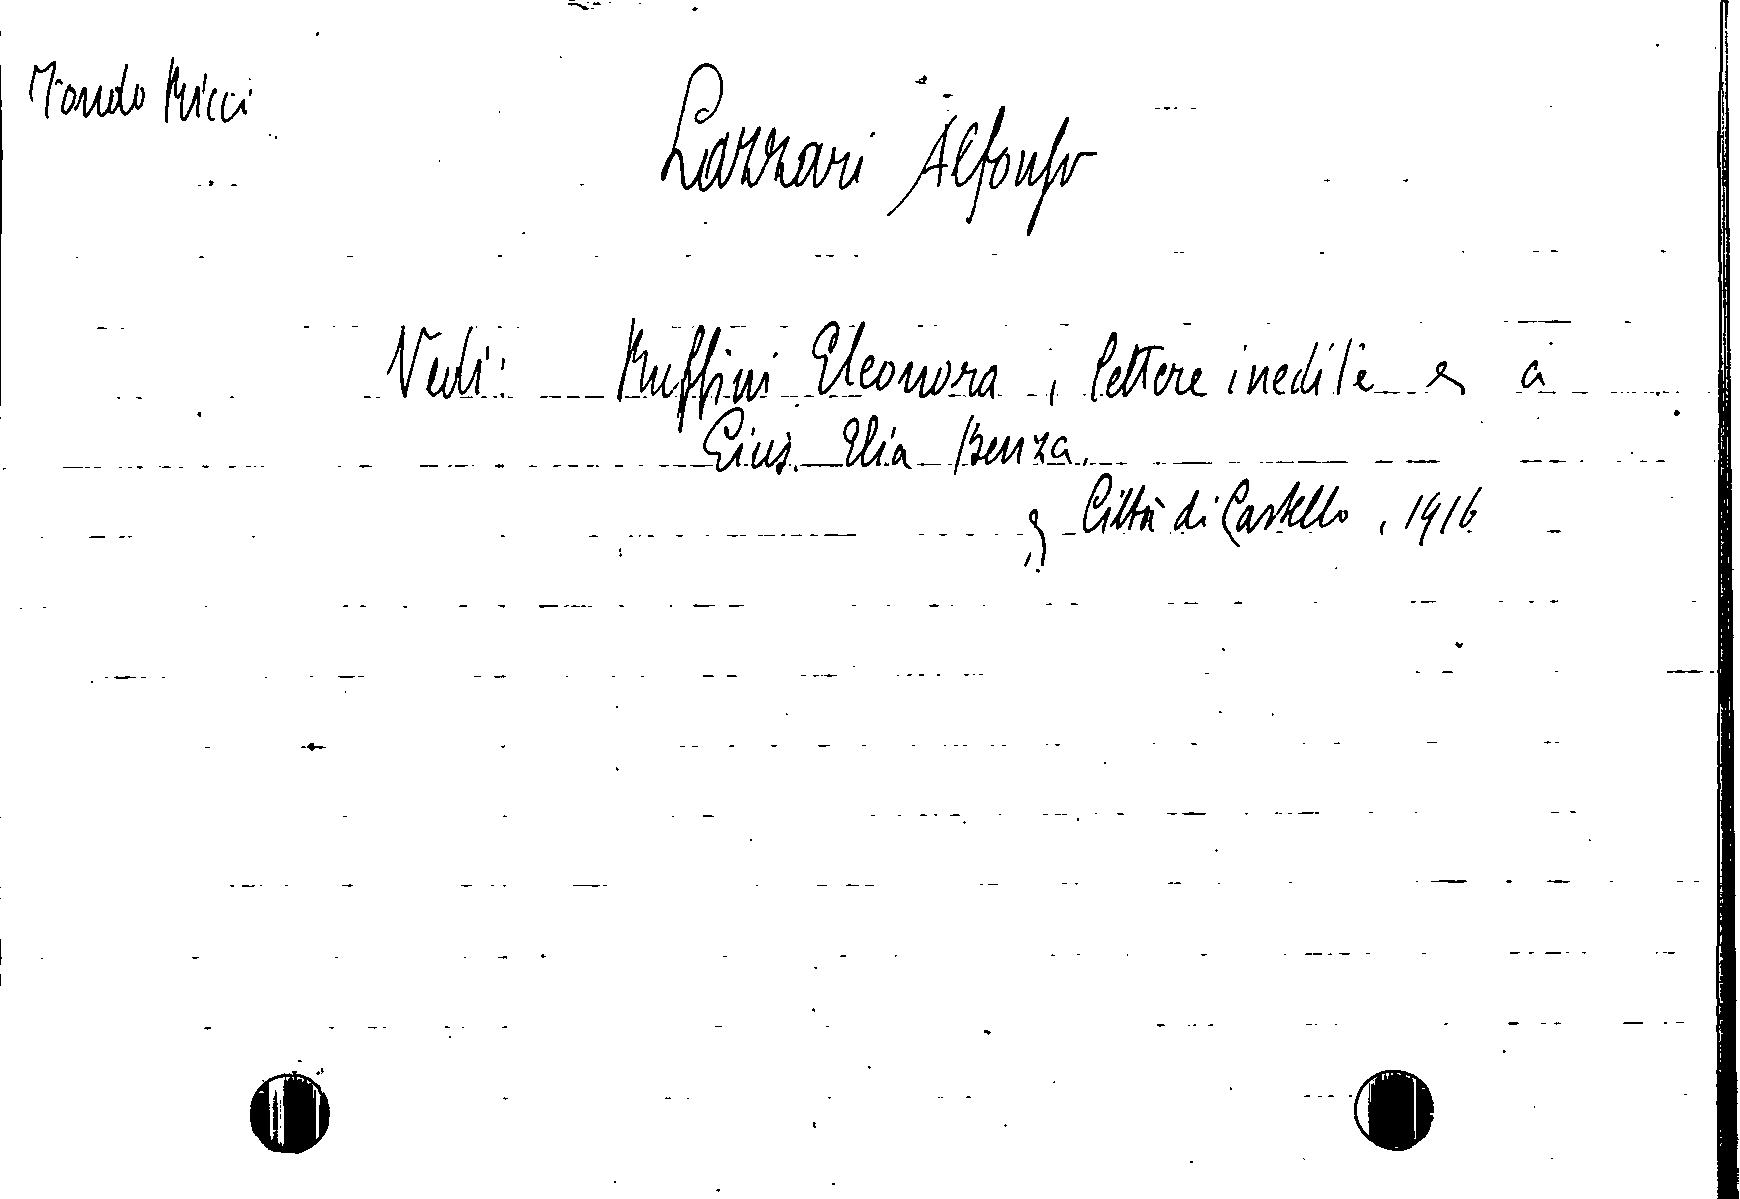 Fondo Ricci
Lazzari Alfonso
Vedi: Ruffini Eleonora, lettere inedite a
Gius. Elia Benza.
Città di Castello, 1916